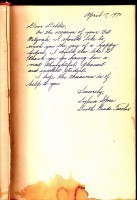 April 17, 1971
Dear Debbie,
On the occasion of your Bat
Mitzvah, I should like to
wish you the joy of a happy
future. I should also like to
thank you for having been in
a most thoughtful, pleasant
and excellent student.
I hope the thesaurus is of
help to you.
Sincerely,
Sylvia
Sixth Grade Teacher